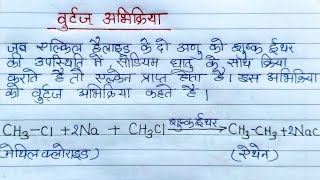 वुर्टज अभिक्रिया
जब एल्किल हैलाइड के दो अणु को शुष्क ईथर
की उपस्थिति में, सोडियम धातु के साथ क्रिया
कराते हैं तो एल्केन प्राप्त होता है। इस अभिक्रिया
को वुर्टज अभिक्रिया कहते हैं।
CH₃-Cl + 2Na + CH₃Cl शुष्क ईथर → CH₃-CH₃ + 2NaC
(मेथिल क्लोराइड) (एथेन)